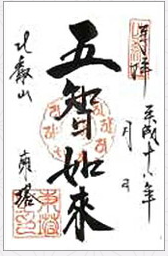 奉拝
平成十八年
月
日
五智如来
比叡山
東塔